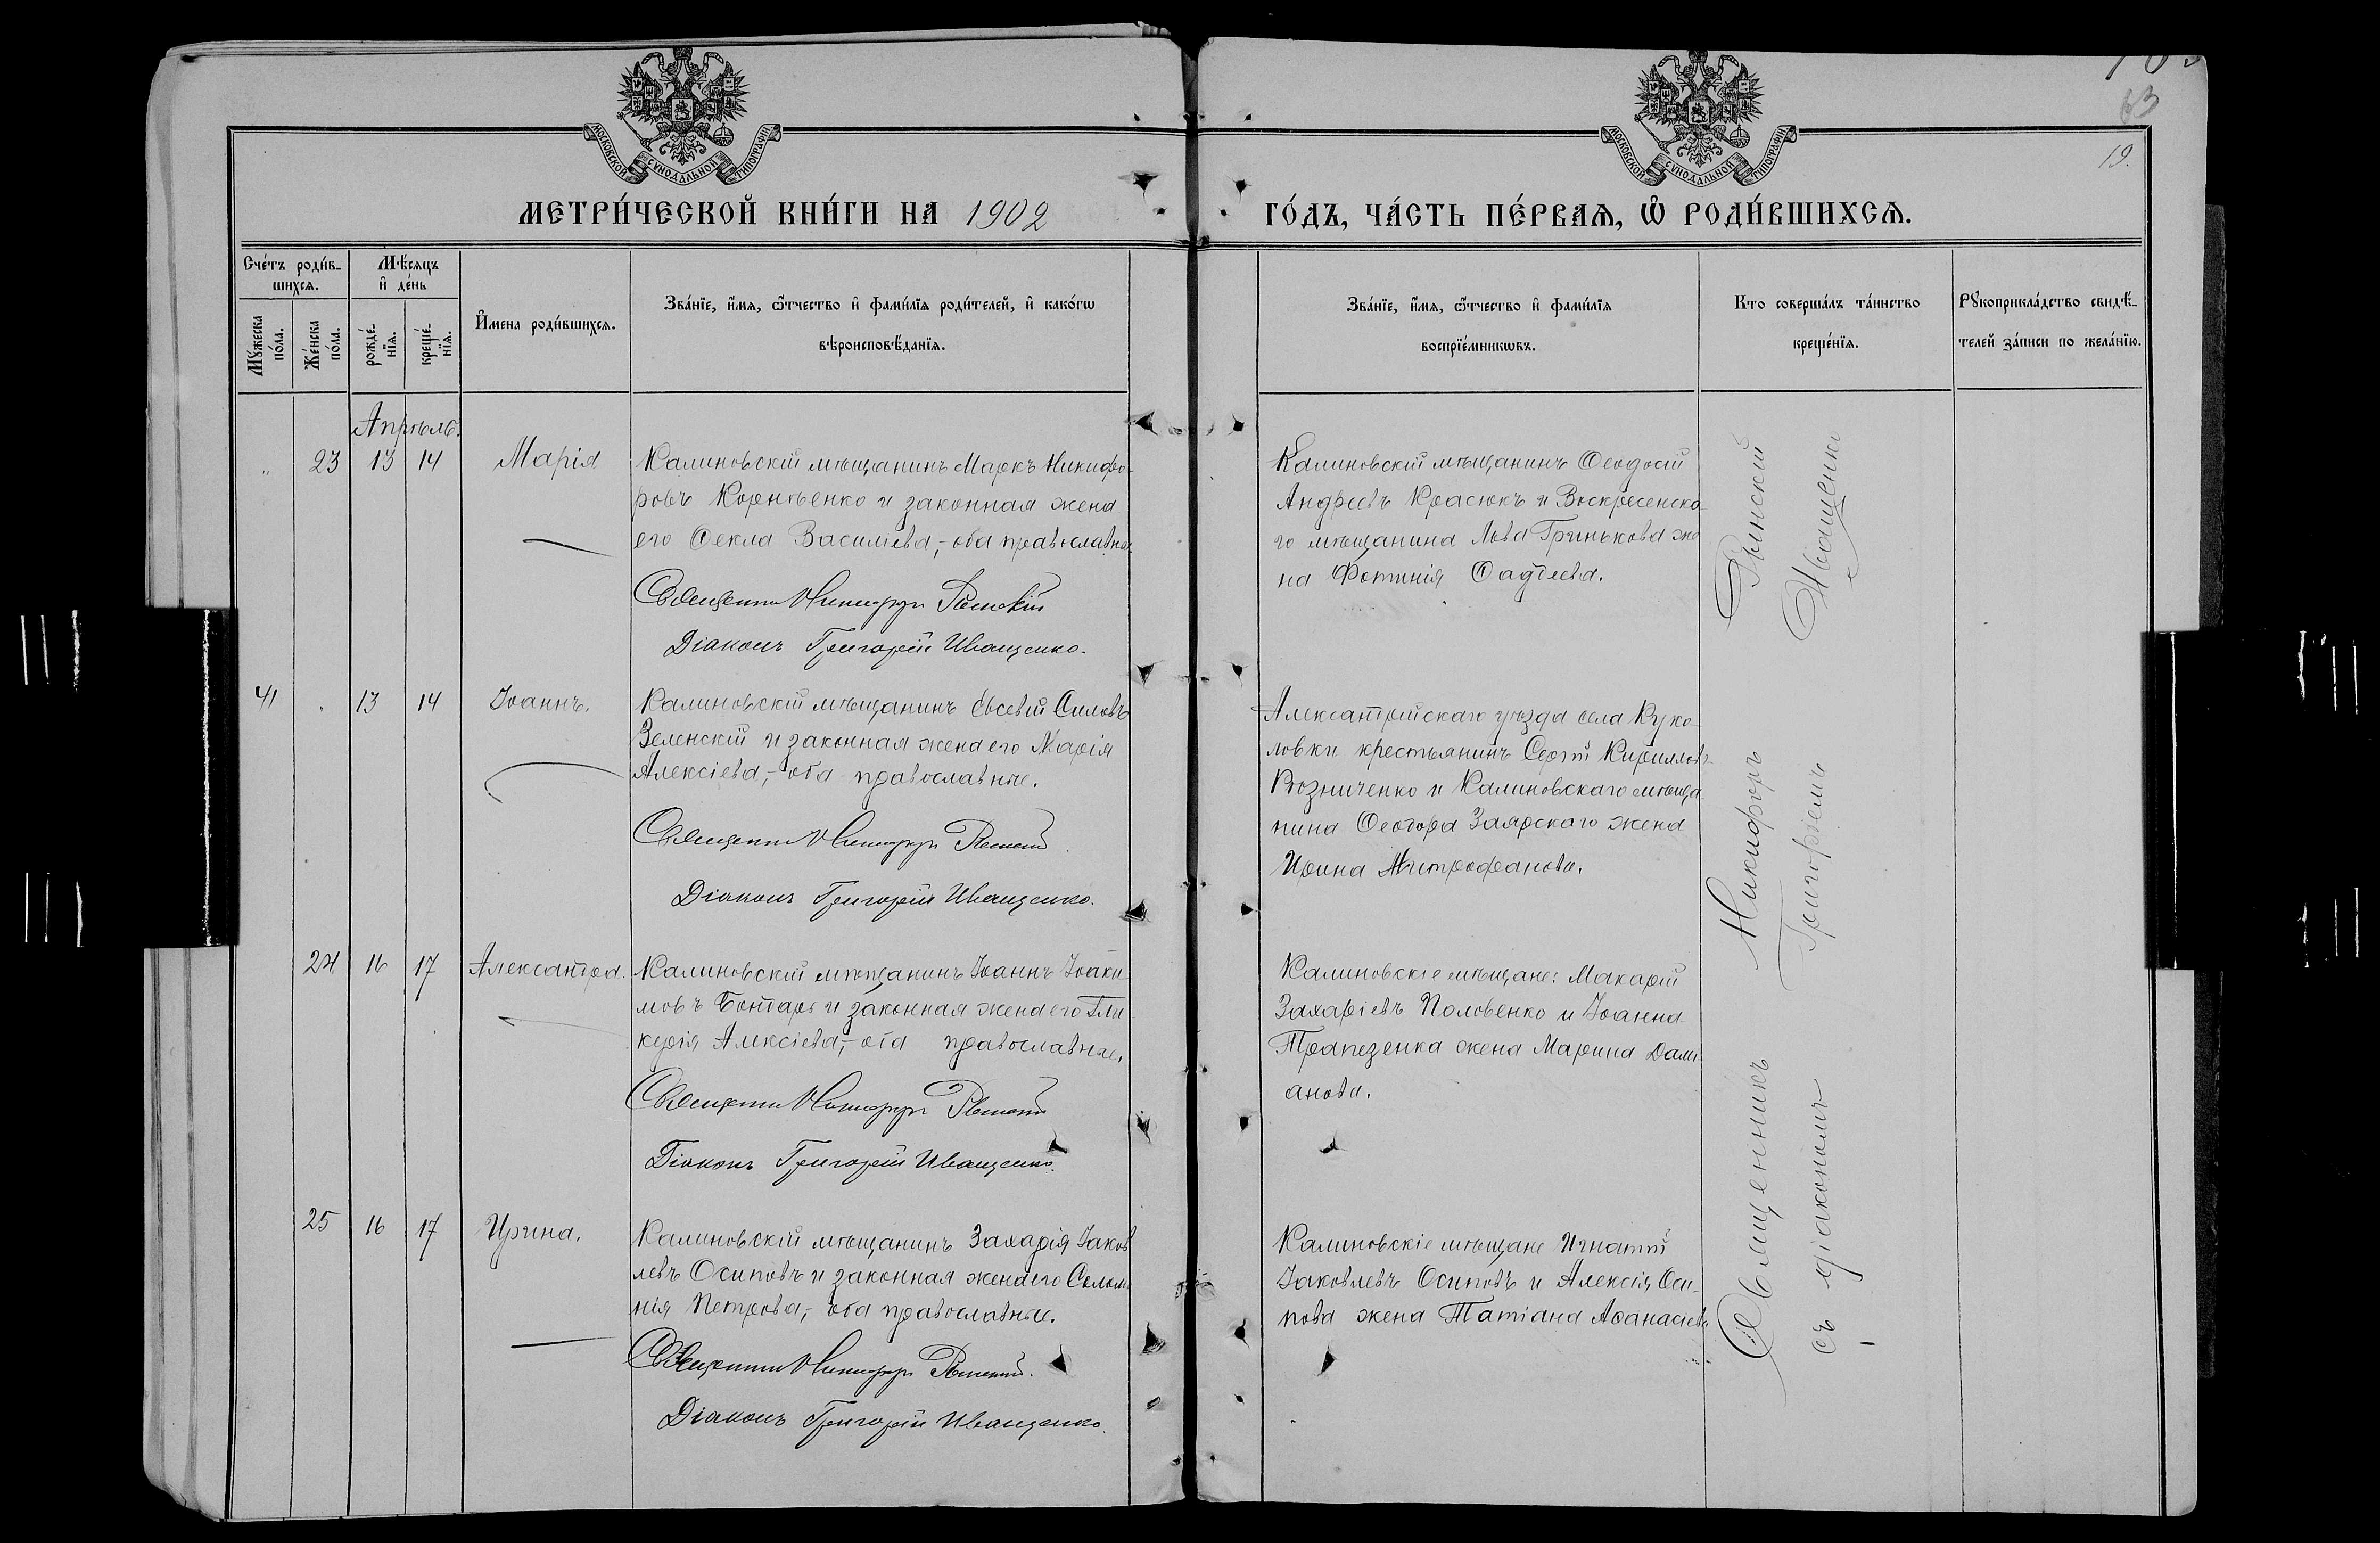 МОСКОВСКОЙ СѴНОДАЛЬНОЙ ТИПОГРАФІИ
МОСКОВСКОЙ СѴНОДАЛЬНОЙ ТИПОГРАФІИ
63
19.
МЕТРИ́ЧЕСКОЙ КНИ́ГИ НА 1902
ГО́ДЪ, ЧА́СТЬ ПЕ́РВАѦ, Ѡ҆ РОДИ́ВШИХСѦ.
Сче́тъ роди́в-
шихсѧ.
Мѣ́сяцъ
и҆ де́нь
Мꙋ́жеска
по́ла.
Же́нска
по́ла.
рожде́-
нїѧ.
креще́-
нїѧ.
И҆мена роди́вшихсѧ.
Зва́нїе, и҆́мѧ, ѻ҆́тчество и҆ фами́лїѧ роди́телей, и҆ како́гѡ
вѣроисповѣ́данїѧ.
Зва́нїе, и҆́мѧ, ѻ҆́тчество и҆ фами́лїѧ
воспрїе́мникѡвъ.
Кто соверша́лъ та́инство
креще́нїѧ.
Рꙋкоприкла́дство свидѣ́-
телей за́писи по жела́нїю.
Апрѣль.
23 13 14 Марія
Калиновскій мѣщанинъ Маркъ Никифо-
ровъ Корнѣенко и законная жена
его Ѳекла Василіева,- оба православные
Священникъ Никифоръ Рѣнскій
Діаконъ Григорій Иващенко.
Калиновскій мѣщанинъ Ѳеодосій
Андреевъ Красюкъ и Воскресенска-
го мѣщанина Льва Гринькова же
на Фотинія Ѳадѣева.
41 13 14 Іоаннъ.
Калиновскій мѣщанинъ Евсевій Силовъ
Зеленскій и законная жена его Марія
Алексіева,- оба православные.
Священникъ Никифоръ Рѣнскій
Діаконъ Григорій Иващенко.
Александрійскаго уѣзда села Куко-
ловки крестьянинъ Сергій Кирилловъ
Возниченко и Калиновскаго мѣща-
нина Ѳеодора Заярскаго жена
Ирина Митрофанова.
24 16 17 Александра.
Калиновскій мѣщанинъ Іоаннъ Іоаки-
мовъ Бондарь и законная жена его Гли
керія Алексіева,- оба православные.
Священникъ Никифоръ Рѣнскій
Діаконъ Григорій Иващенко.
Калиновскіе мѣщане: Макарій
Захаріевъ Половенко и Іоанна
Трапезенка жена Марина Дамі-
анова.
25 16 17 Ирина.
Калиновскій мѣщанинъ Захарія Іаков
левъ Осиповъ и законная жена его Соломо
нія Петрова,- оба православные.
Священникъ Никифоръ Рѣнскій.
Діаконъ Григорій Иващенко.
Калиновскіе мѣщане Игнатій
Іаковлевъ Осиповъ и Алексія Оси-
пова жена Татіана Аѳанасіева
Священникъ Никифоръ Рѣнскій
съ діакономъ Григоріемъ Иващенко